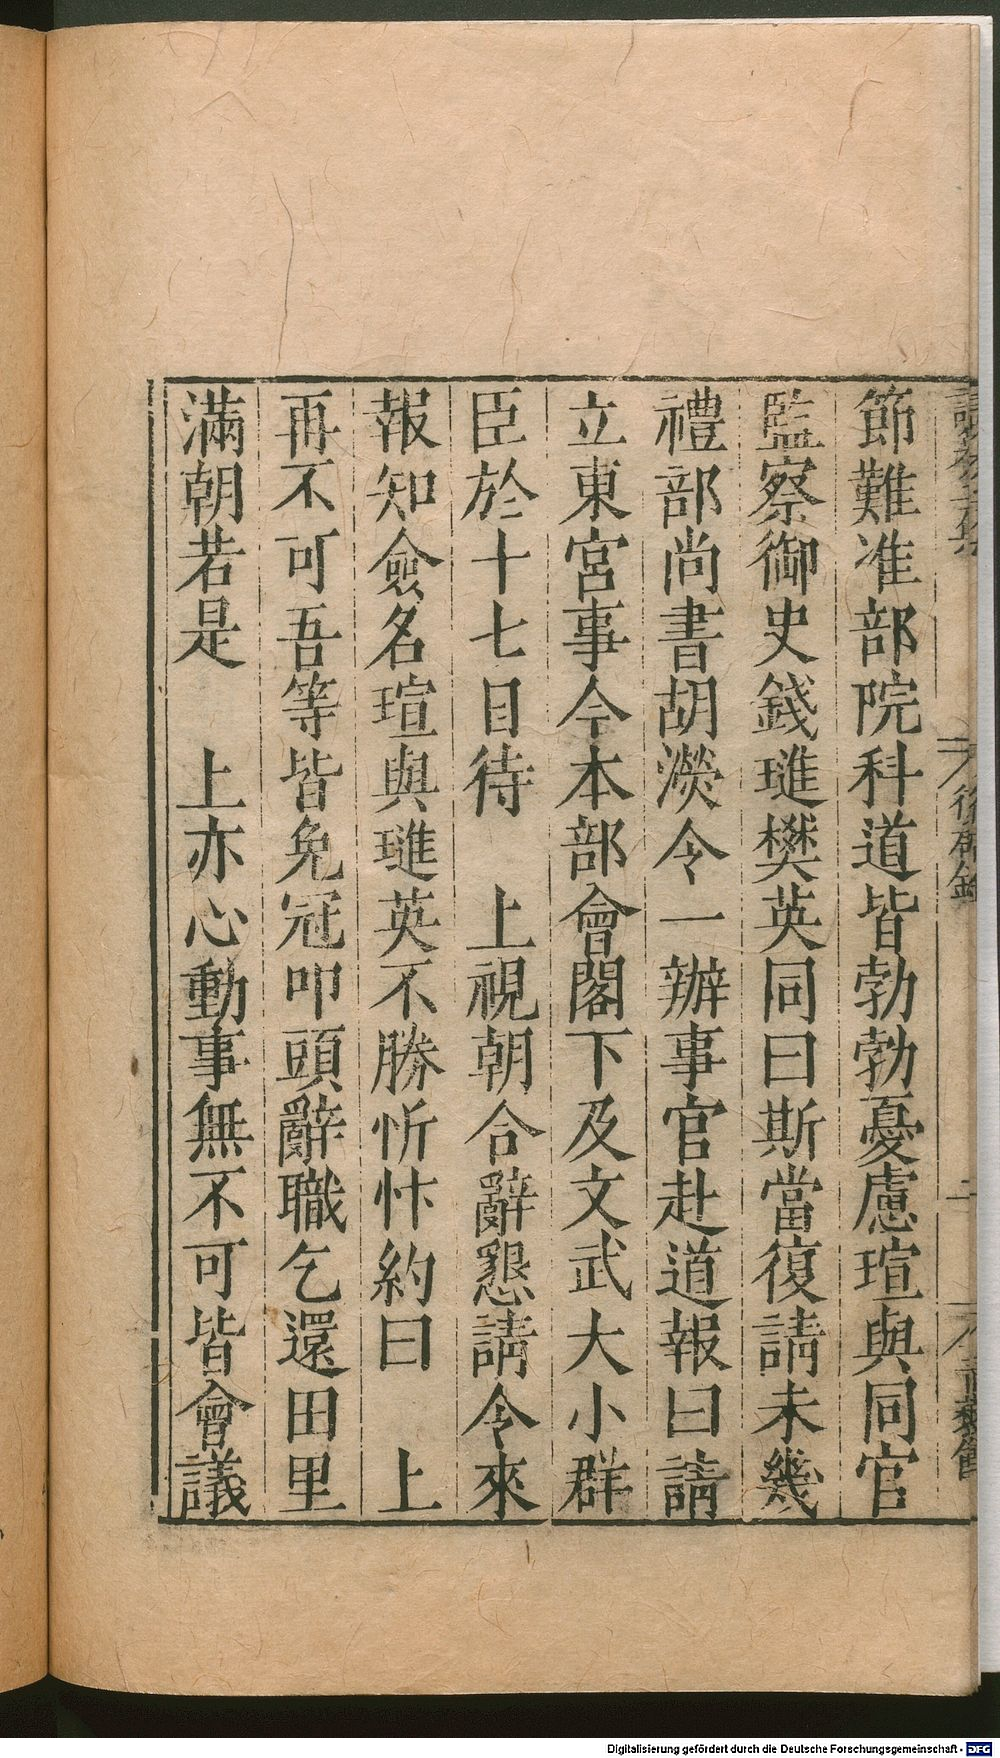 節難准部院科道皆勃勃憂慮瑄與同官
監察御史錢璡樊英同曰斯當復請未幾
禮部尚書胡濙令一辦事官赴道報曰請
立東宮事今本部會閣下及文武大小群
臣於十七日待　上視朝合辭懇請令來
報知僉名瑄與璡英不勝忻忭約曰　上
再不可吾等皆免冠叩頭辭職乞還田里
滿朝若是　上亦心動事無不可皆會議
Digitalisierung gefördert durch die Deutsche Forschungsgemeinschaft - DFG